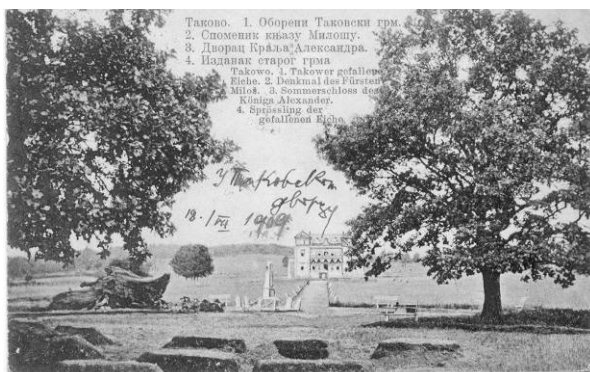 Таково. 1. Оборени Таковски грм.
2. Споменик књазу Милошу.
3. Дворац Краља Александра.
4. Изданак старог грма
Takowo. 1. Takower gefallene
Eiche. 2. Denkmal des Fürsten
Miloš. 3. Sommerschloss des
Königs Alexander.
4. Sprössling der
gefallenen Eiche
У Таковском
дворцу